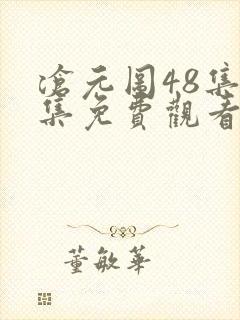 滄元圖48集
集免費觀看
董敏華